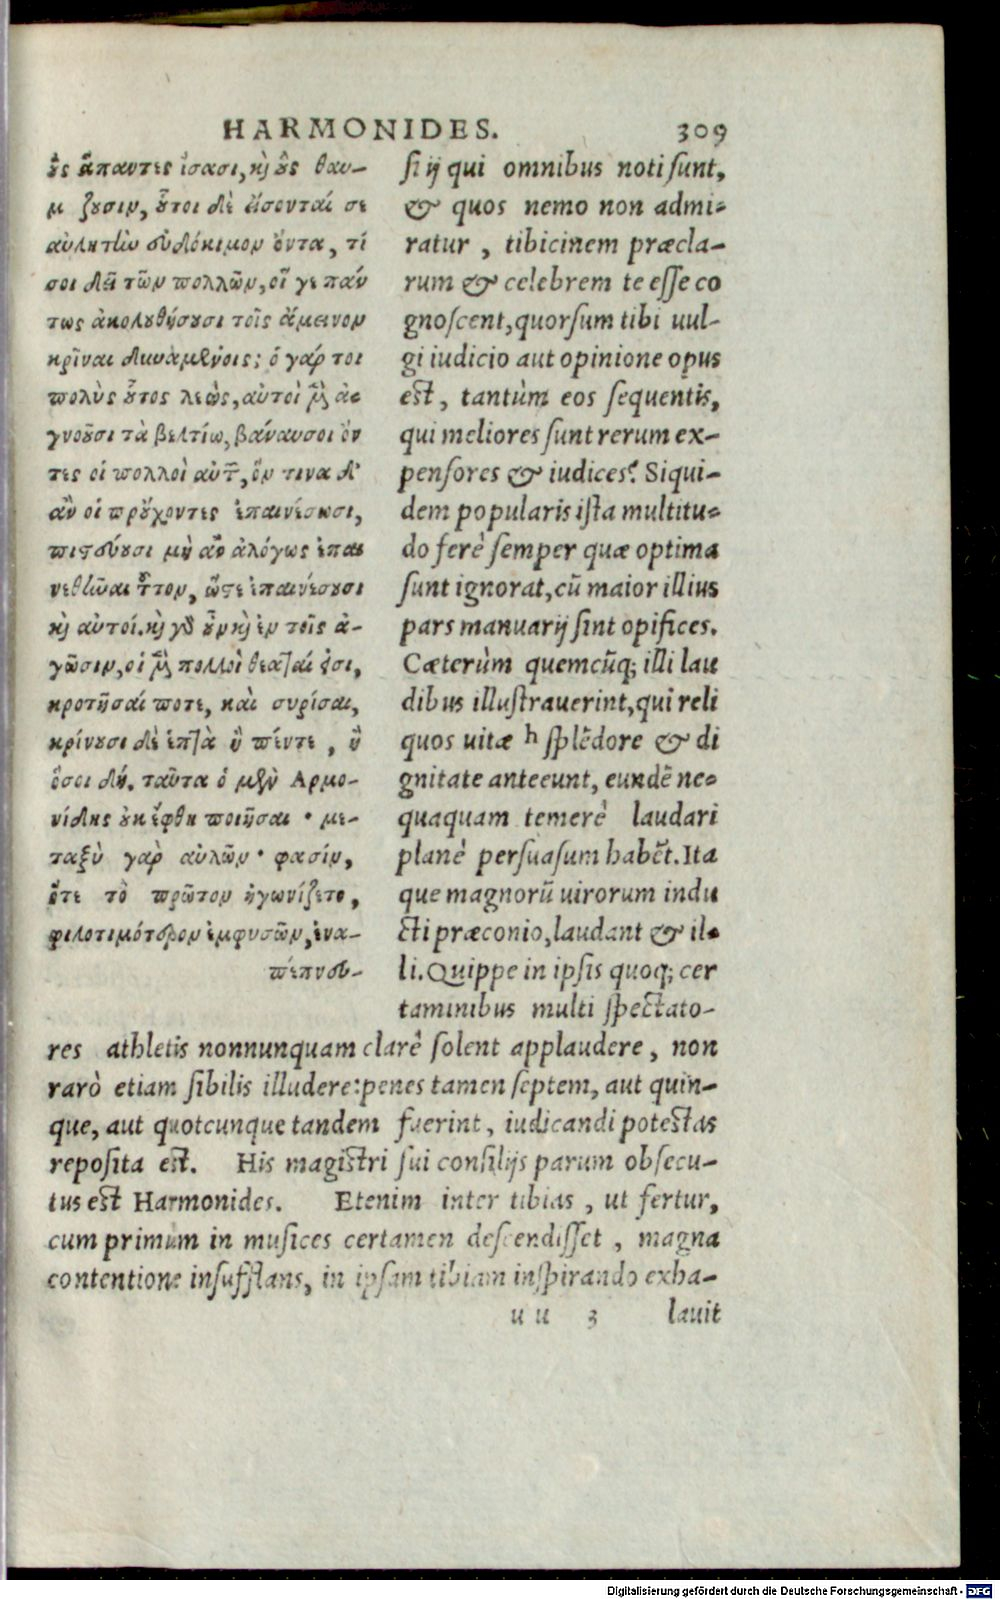 HARMONIDES. 309
οὓς ἅπαντες ἴσασι, κỳ οὓς θαυ-
μ ζουσιν, οὗτοι δὲ εἴσονταί σε
αὐλητὴν εὐδόκιμον ὄντα, τί
σοι δεῖ τῶν πολλῶν, οἵ γε πάν
τως ἀκολουθήσουσι τοῖς ἄμεινον
κρῖναι δυναμένοις; ὁ γάρ τοι
πολὺς οὗτος λεὼς, αὐτοὶ μὲν ἀ-
γνοοῦσι τὰ βελτίω, βάναυσοι ὄν
τες οἱ πολλοὶ αὐτῶν, ὅν τινα δ'
ἂν οἱ προὔχοντες ἐπαινέσωσι,
πιστεύουσι μὴ ἂν ἀλόγως ἐπαι
νεθῆναι τοῦτον, ὥστε ἐπαινέσουσι
κỳ αὐτοί. κỳ γὸ οὖν κỳ ἐν τοῖς ἀ-
γῶσιν, οἱ μὲν πολλοὶ θεαταὶ ἴσασι,
κροτῆσαί ποτε, καὶ συρίσαι,
κρίνουσι δὲ ἑπτὰ ἢ πέντε, ἢ
ὅσοι δή. ταῦτα ὁ μὲν Αρμο-
νίδης οὐκ ἔφθη ποιῆσαι · με-
ταξὺ γὰρ αὐλῶν · φασίν,
ὅτε τὸ πρῶτον ἠγωνίζετο,
φιλοτιμότερον ἐμφυσῶν, ἐνα-
πέπνευ-
si ij qui omnibus noti sunt,
& quos nemo non admi-
ratur, tibicinem præcla-
rum & celebrem te esse co
gnoscent, quorsum tibi uul-
gi iudicio aut opinione opus
est, tantùm eos sequentis,
qui meliores sunt rerum ex-
pensores & iudices? Siqui-
dem popularis ista multitu-
do ferè semper quæ optima
sunt ignorat, cū maior illius
pars manuarij sint opifices.
Cæterùm quemcūq; illi lau
dibus illustrauerint, qui reli
quos uitæ h splēdore & di
gnitate anteeunt, eundē ne-
quaquam temerè laudari
planè persuasum habēt. Ita
que magnorū uirorum indu
cti præconio, laudant & il-
li. Quippe in ipsis quoq; cer
taminibus multi spectato-
res athletis nonnunquam clarè solent applaudere, non
rarò etiam sibilis illudere: penes tamen septem, aut quin-
que, aut quotcunque tandem fuerint, iudicandi potestas
reposita est. His magistri sui consilijs parum obsecu-
tus est Harmonides. Etenim inter tibias, ut fertur,
cum primum in musices certamen descendisset, magna
contentione insufflans, in ipsam tibiam inspirando exha-
uu 3 lauit
Digitalisierung gefördert durch die Deutsche Forschungsgemeinschaft - DFG